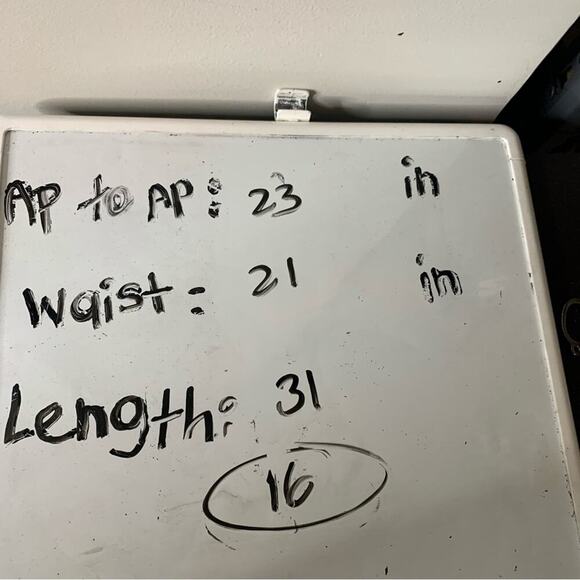 AP to AP: 23 in
Waist: 21 in
Length: 31
16